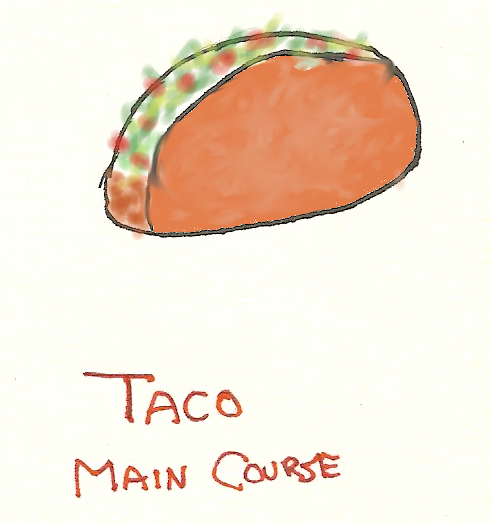 TACO
MAIN COURSE